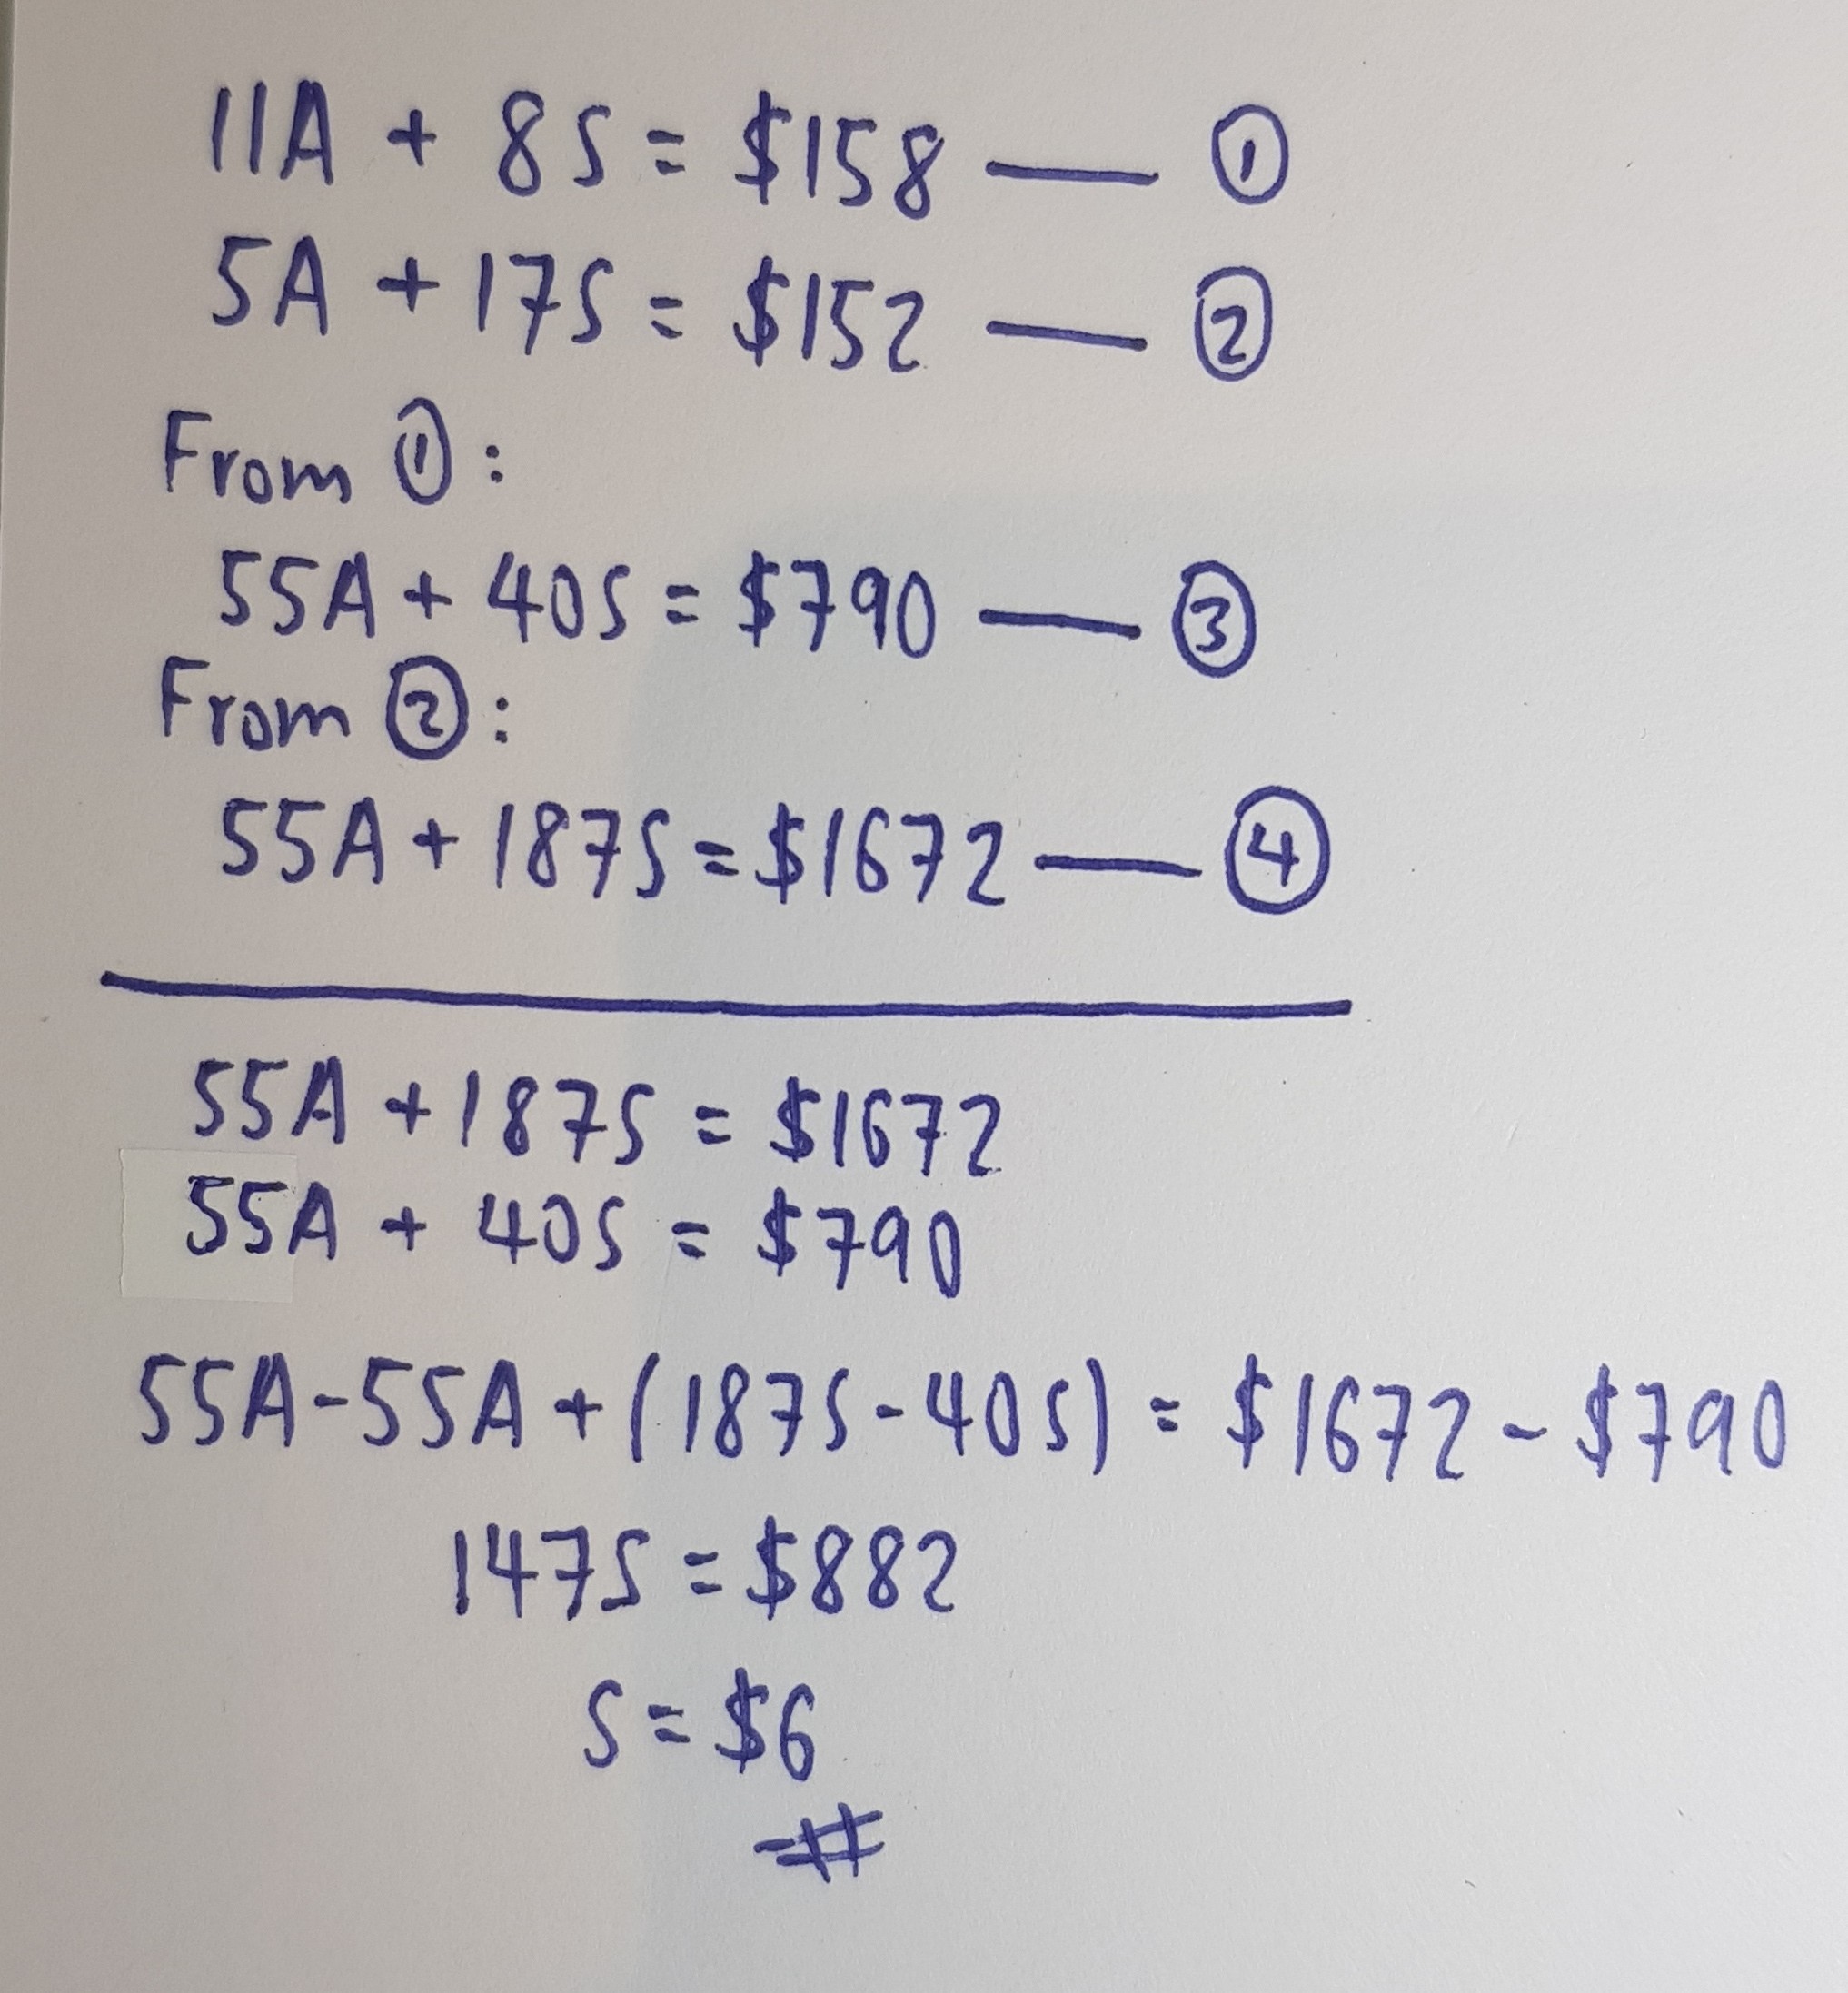 11A + 8S = $158 — ①
5A + 17S = $152 — ②
From ①:
55A + 40S = $790 — ③
From ②:
55A + 187S = $1672 — ④
55A + 187S = $1672
55A + 40S = $790
55A - 55A + (187S - 40S) = $1672 - $790
147S = $882
S = $6
#